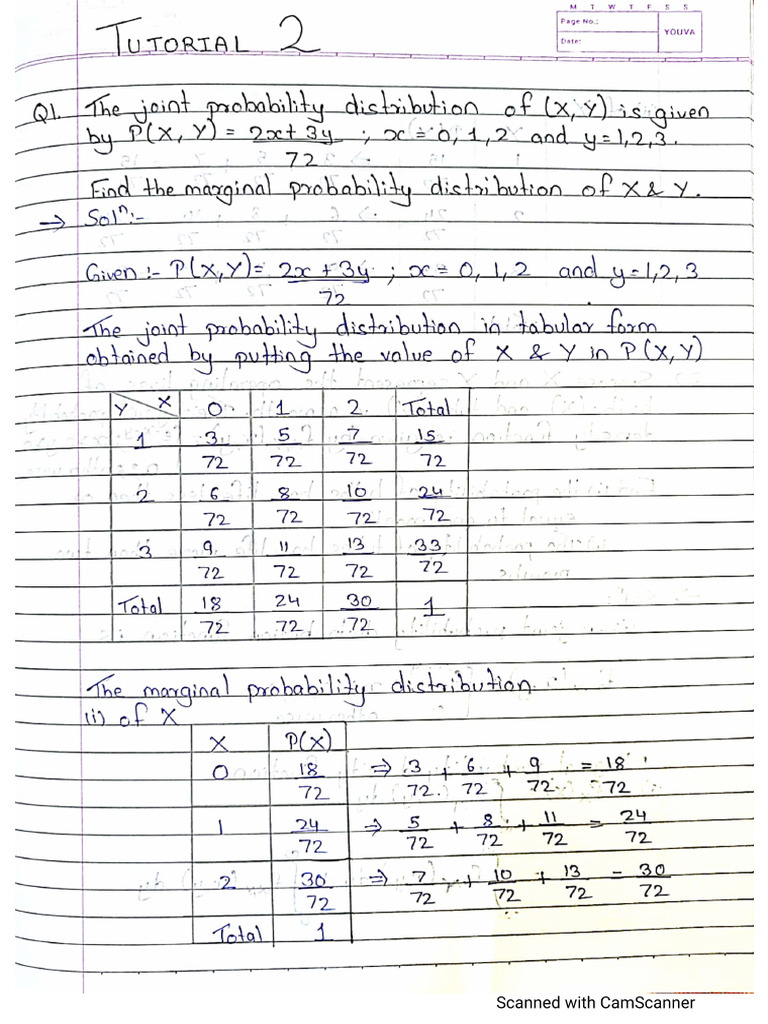 M T W T F S S
Page No.:
Date:
YOUVA
TUTORIAL 2
Q1. The joint probability distribution of (X, Y) is given
by P(X, Y) = 2x + 3y / 72 ; x = 0, 1, 2 and y = 1, 2, 3.
Find the marginal probability distribution of X & Y.
→ Solⁿ:-
Given :- P(X, Y) = 2x + 3y / 72 ; x = 0, 1, 2 and y = 1, 2, 3
The joint probability distribution in tabular form
obtained by putting the value of X & Y in P(X, Y)
Y X 0 1 2 Total
1 3/72 5/72 7/72 15/72
2 6/72 8/72 10/72 24/72
3 9/72 11/72 13/72 33/72
Total 18/72 24/72 30/72 1
The marginal probability distribution
(i) of X
X P(X)
0 18/72 ⇒ 3/72 + 6/72 + 9/72 = 18/72
1 24/72 ⇒ 5/72 + 8/72 + 11/72 = 24/72
2 30/72 ⇒ 7/72 + 10/72 + 13/72 = 30/72
Total 1
Scanned with CamScanner